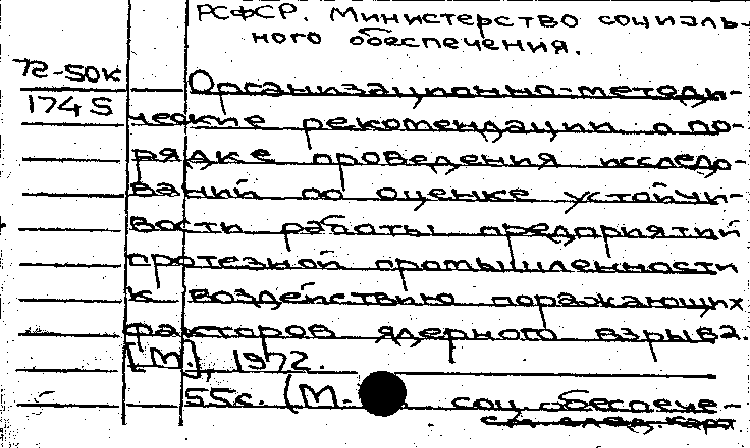 РСФСР. Министерство социаль-
ного обеспечения.
72-50к
174 5
Организационно-методи-
ческие рекомендации о по-
рядке проведения исследо-
ваний по оценке устойчи-
вости работы предприятий
протезной промышленности
к воздействию поражающих
факторов ядерного взрыва.
[М.], 1972.
55с. (М- соц обеспече-
см след карт